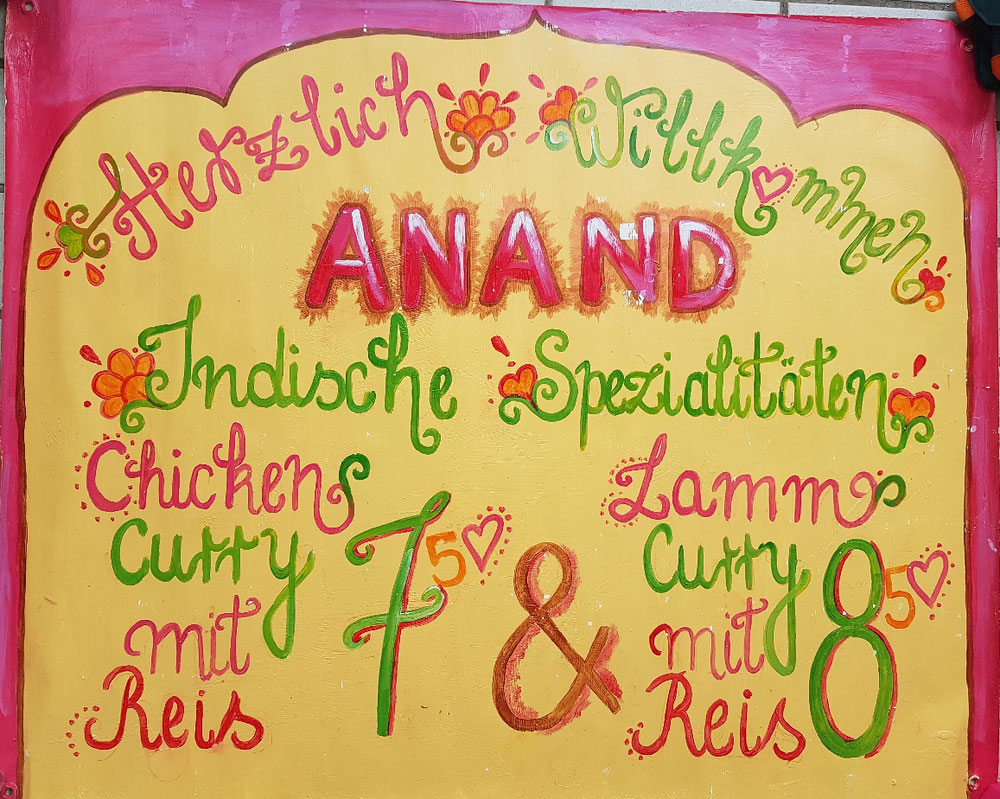 Herzlich Willkommen
ANAND
Indische Spezialitäten
Chicken
Curry
mit
Reis
7 50
&
Lamm
Curry
mit
Reis
8 50